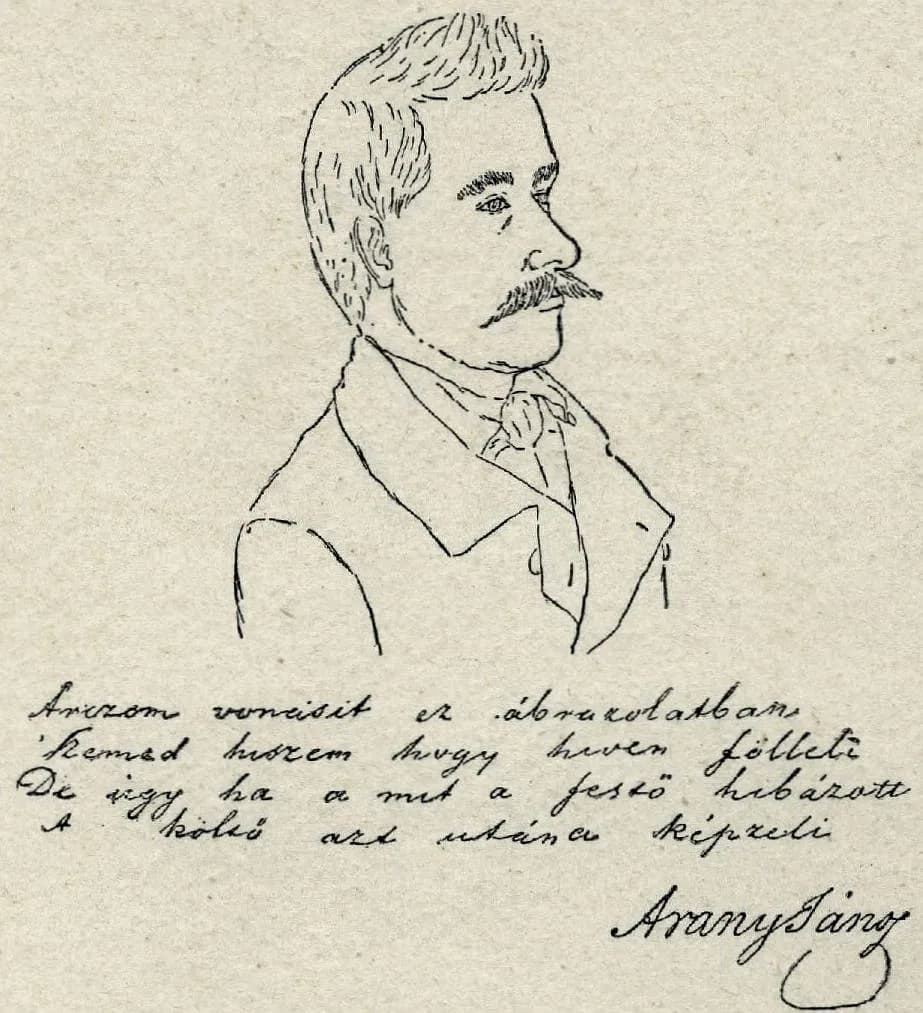 Arczom vonásit ez ábrazolatban
Szemed hiszem hogy hiven föllelé
De ugy ha a mit a festő hibázott
A költő azt utána képzeli
Arany János